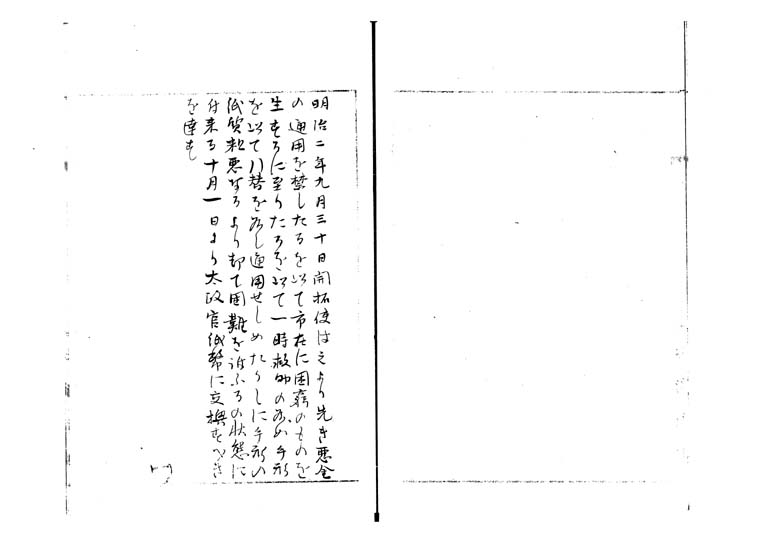 明治二年九月三十日開拓使は之より先き悪金
の通用を禁したるを以て市在に困窮のものを
生するに至りたるを以て一時救助の為め手形
を以て引替を為し通用せしめたりしに手形の
紙質粗悪なるより却て困難を訴ふるの状態に
付来る十月一日より太政官紙幣に交換すべき
を達す